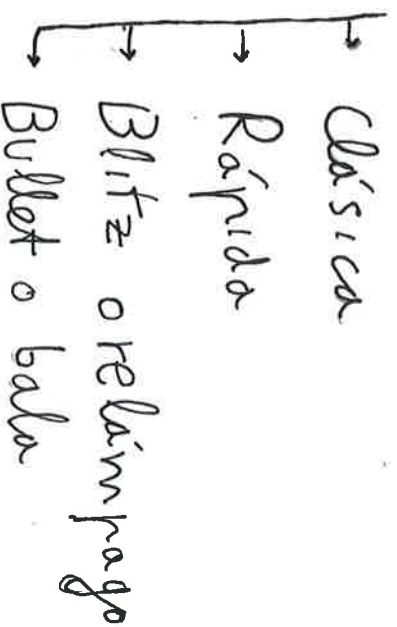 Clásica
Rápida
Blitz o relámpago
Bullet o bala